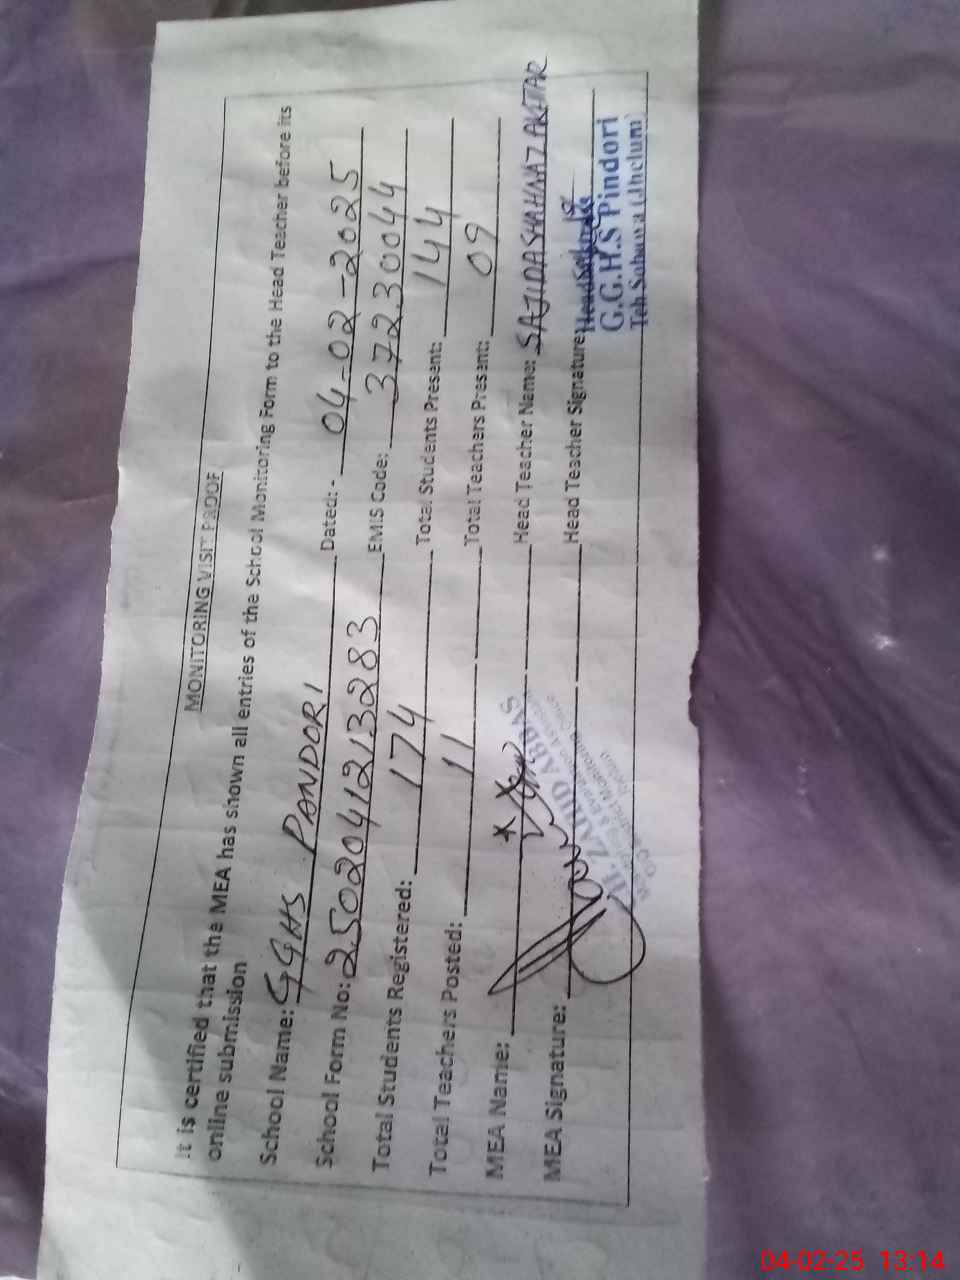 MONITORING VISIT PROOF
It is certified that the MEA has shown all entries of the School Monitoring Form to the Head Teacher before its
online submission
School Name: GGHS PANDORI Dated:- 04-02-2025
School Form No: 2502041213283 EMIS Code: 37230044
Total Students Registered: 174 Total Students Present: 144
Total Teachers Posted: 11 Total Teachers Present: 09
MEA Name: Head Teacher Name: SAJIDA SHAHNAZ AKHTAR
MEA Signature: Head Teacher Signature:
ZAHID ABBAS
District Monitoring
G.G.H.S Pindori
Teh Sohawa (Jhelum)
04-02-25 13:14